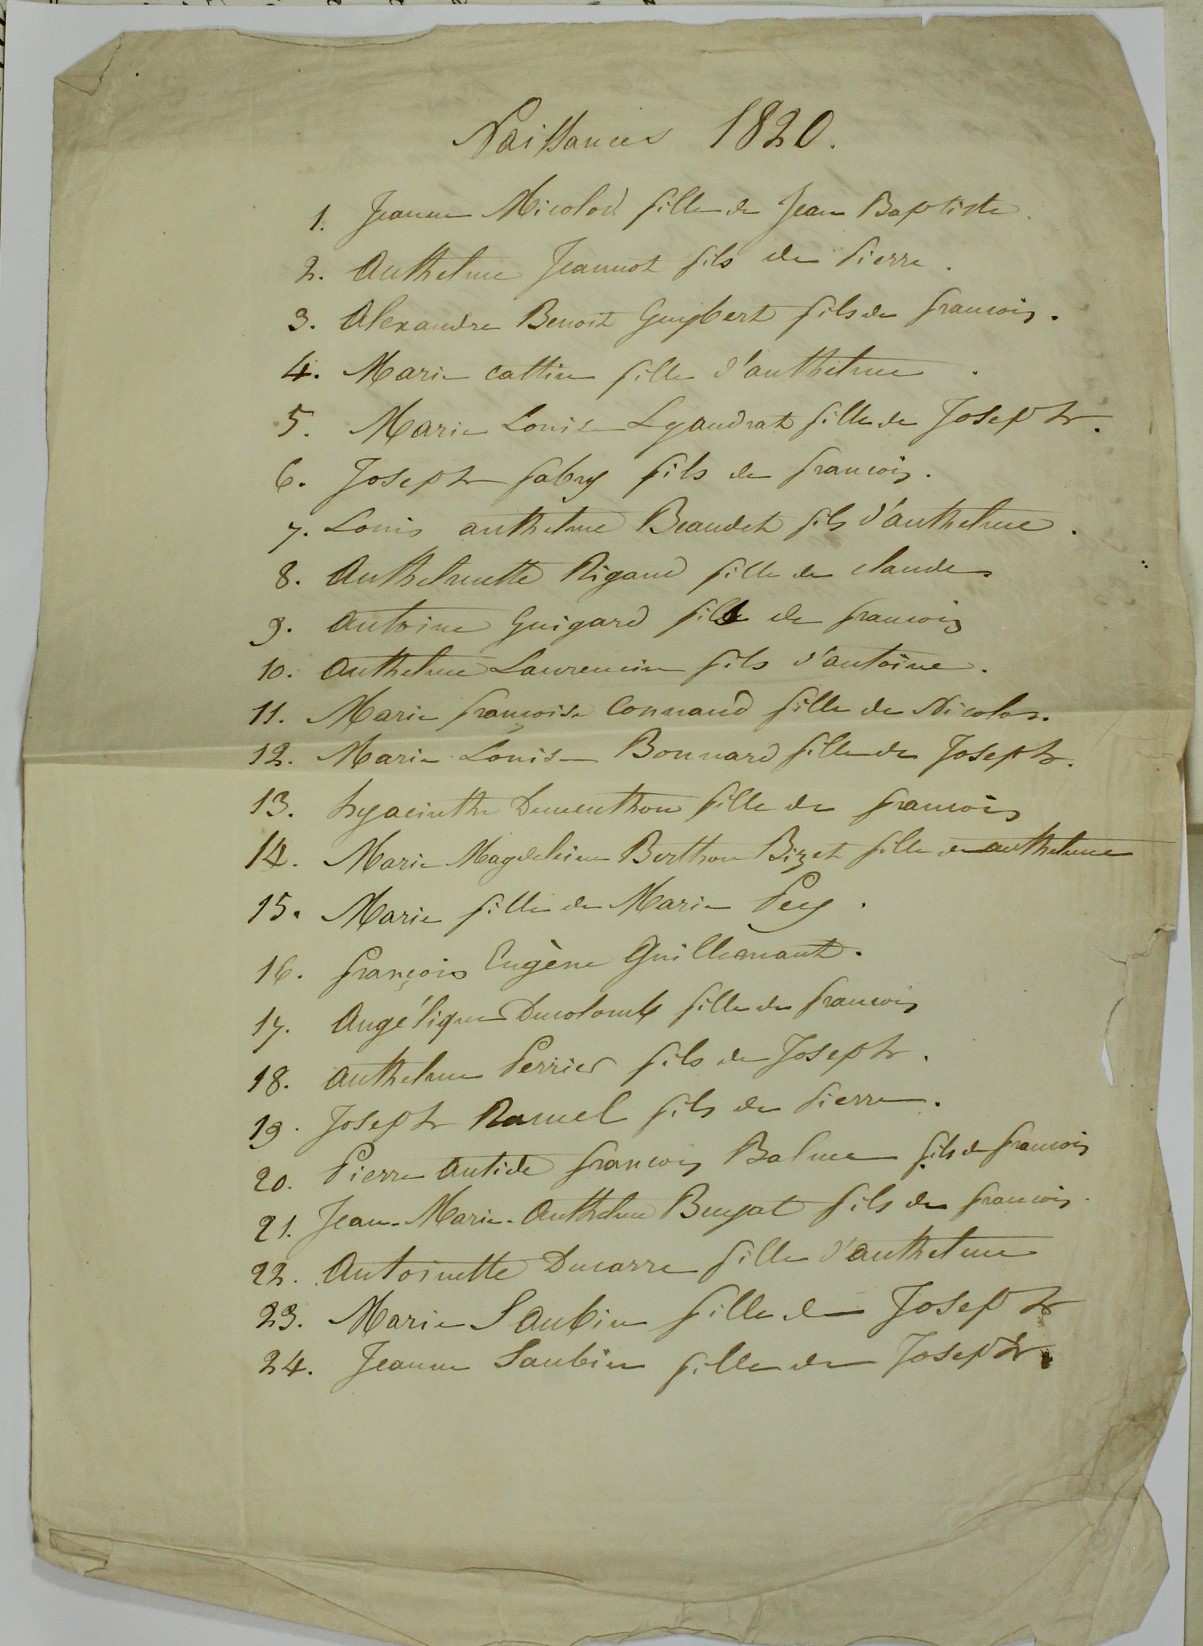 Naissances 1820.
1. Jeanne Micolod fille de Jean Baptiste.
2. Anthelme Jeannot fils de Pierre.
3. Alexandre Benoit Guybert fils de francois.
4. Marie Cattin fille d'anthelme.
5. Marie Louise Lyaudrat fille de Joseph.
6. Joseph fabry fils de francois.
7. Louis anthelme Beaudet fils d'anthelme.
8. Anthelmette Rigaud fille de claude
9. Antoine Guigard fils de francois
10. Anthelme Laurencin fils d'antoine.
11. Marie francoise Connand fille de Nicolas.
12. Marie Louise Bonnard fille de Joseph.
13. hyacinthe Dementhon fille de francois
14. Marie Magdeleine Berthon Bizet fille de anthelme
15. Marie fille de Marie Pey.
16. françois Eugène Guillemant.
17. Angélique Ducolomb fille de francois
18. Anthelme Perrier fils de Joseph.
19. Joseph Ramel fils de Pierre.
20. Pierre Antide francois Balme fils de francois
21. Jean-Marie-Anthelme Bugat fils de francois.
22. Antoinette Ducarre fille d'anthelme
23. Marie Saubin fille de Joseph
24. Jeanne Saubin fille de Joseph.